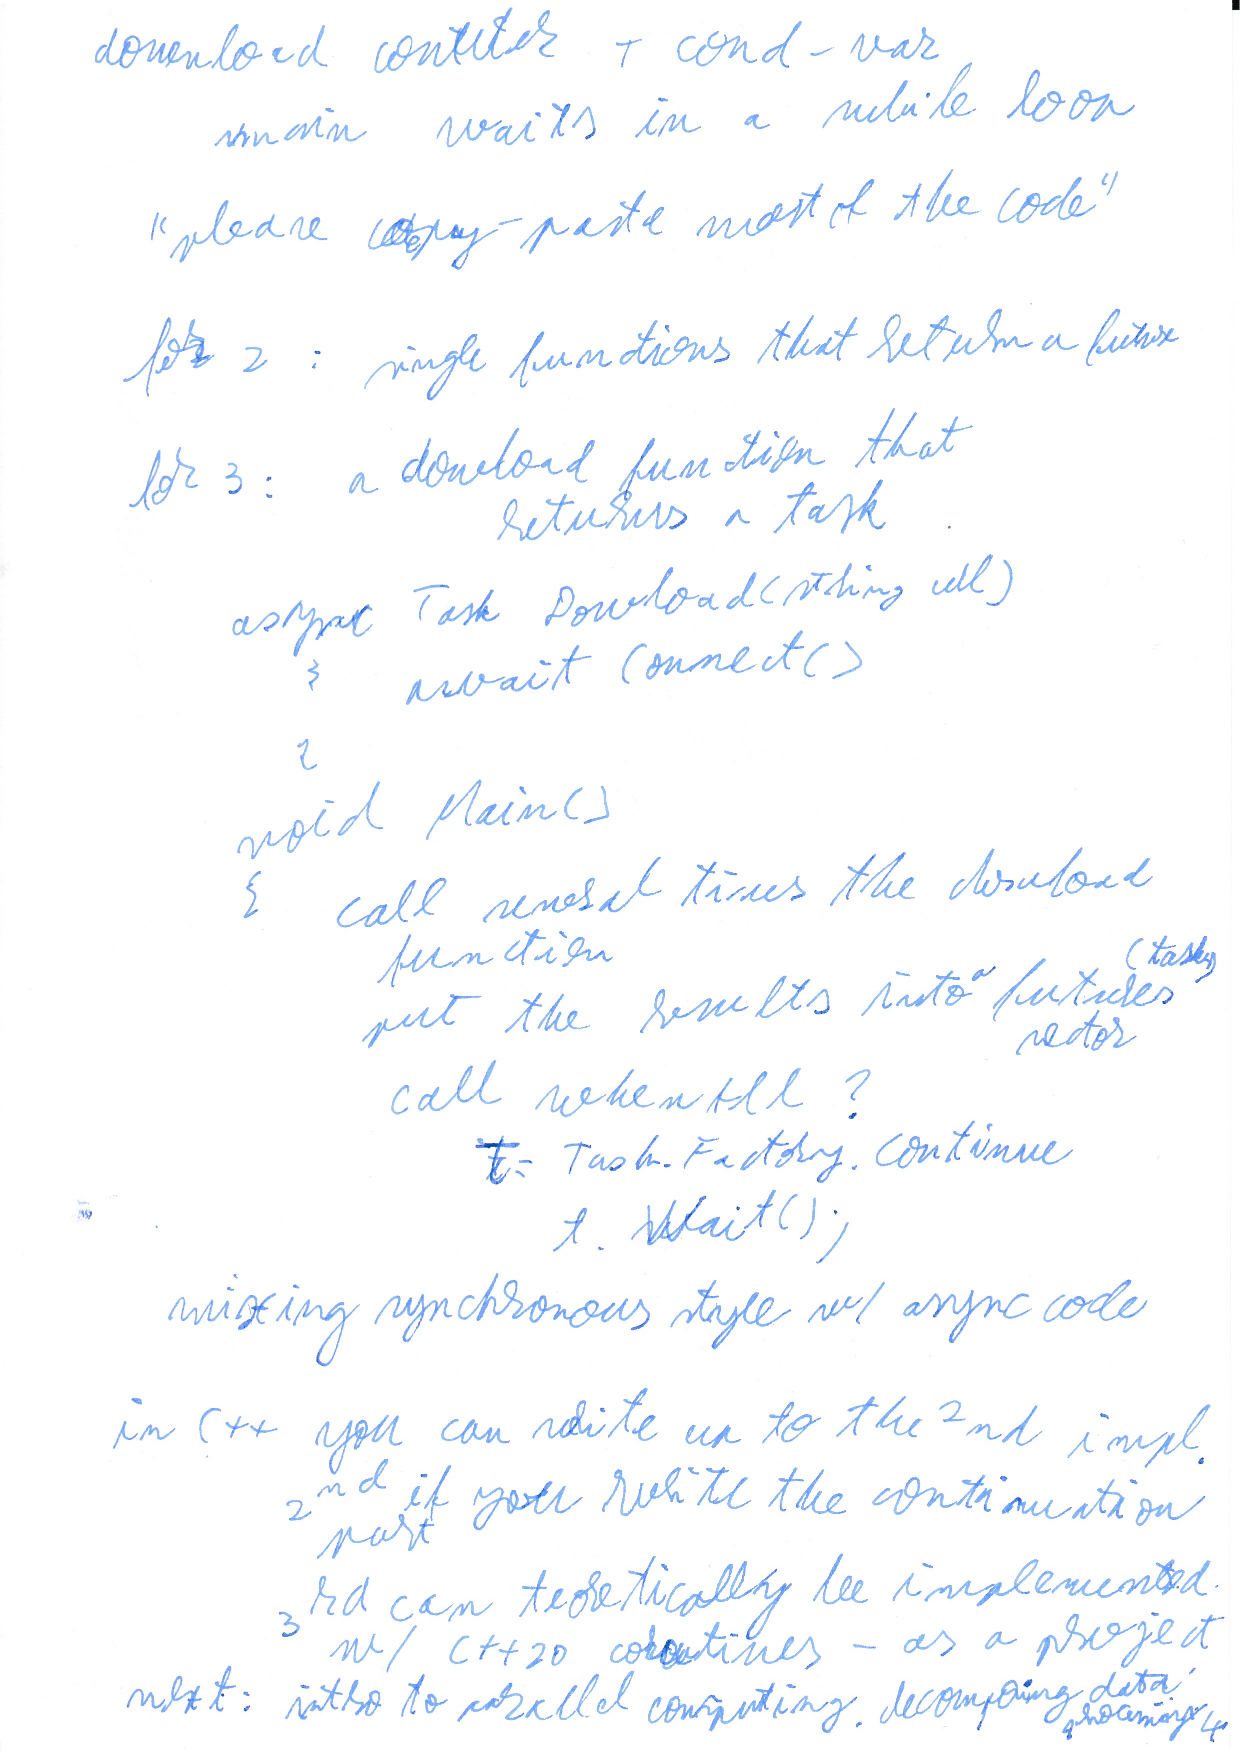 download counter + cond-var
main waits in a while loop
"please copy-paste most of the code"
for 2 : single functions that return a future
for 3 : a dowload function that
returns a task
async Task Dowload(string url)
{ await Connect()
}
void Main()
{ call several times the download
function
(tasks)
put the results into a futures
vector
call whenAll ?
t = Task.Factory.Continue
t. Wait();
mixing synchronous style w/ async code
in C++ you can write up to the 2nd impl.
2nd if you write the continuation
part
3rd can teoretically be implemented
w/ C++20 coroutines - as a project
next: intro to parallel computing. decomposing data
processing